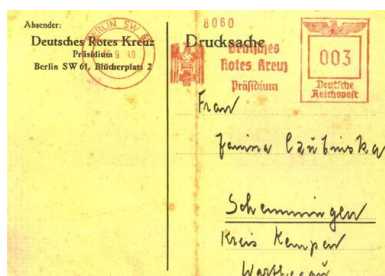 Absender:
Deutsches Rotes Kreuz
Präsidium
Berlin SW 61, Blücherplatz 2
BERLIN SW
9 40
Drucksache
8060
Deutsches
Rotes Kreuz
Präsidium
003
Deutsche
Reichspost
Frau
Janina
Schemmingen
Kreis Kempen
Warthegau